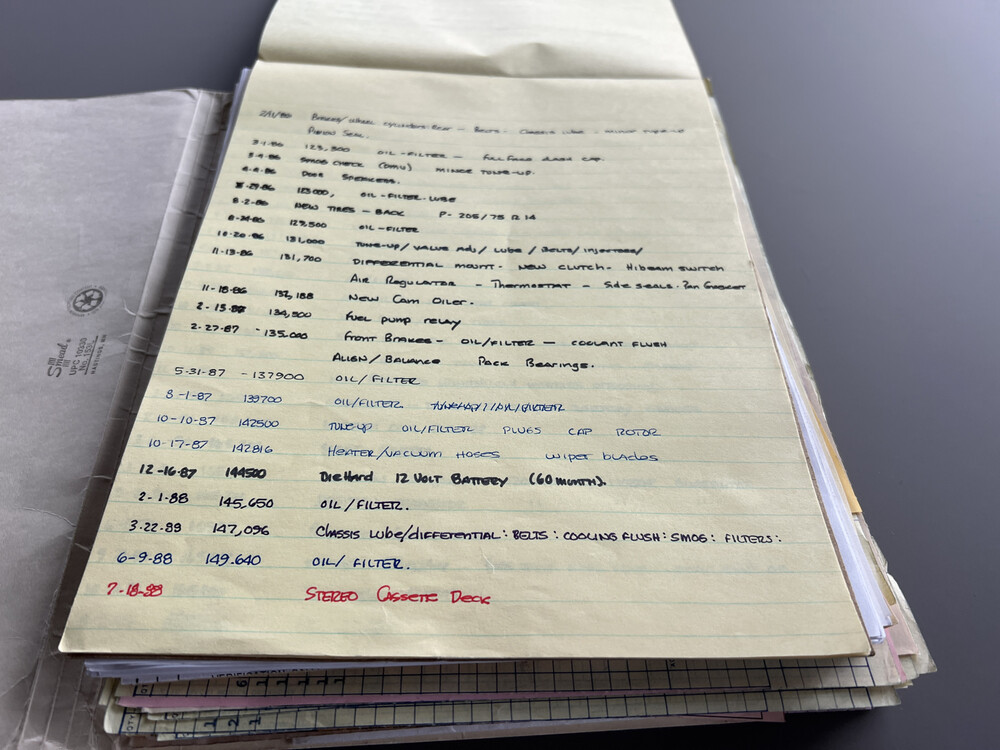 Brakes/wheel cylinders: Rear - Belts - Chassis Lube - Minor Tune-up
Pinion Seal.
3-1-86 123,500 OIL-FILTER -
3-4-86 SMOG CHECK (DMV) MINOR TUNE-UP.
4-4-86 DOOR SPEAKERS.
5-29-86 OIL-FILTER-LUBE
8-2-86 NEW TIRES - BACK P-205/75 R 14
8-24-86 129,500 OIL-FILTER
10-20-86 131,000 TUNE-UP/VALVE ADJ/LUBE/BELTS/INJECTORS/
11-13-86 131,700 DIFFERENTIAL MOUNT- NEW CLUTCH- HIBEAM SWITCH
AIR REGULATOR - THERMOSTAT - SIDE SEALS. PAN GASKET
11-18-86 132,188 NEW CAM OILER.
2-15-87 134,500 FUEL PUMP RELAY
2-27-87 -135,000 FRONT BRAKES - OIL/FILTER - COOLANT FLUSH
ALIGN/BALANCE PACK BEARINGS.
5-31-87 -137900 OIL/FILTER
8-1-87 139700 OIL/FILTER
10-10-87 142500 TUNEUP OIL/FILTER PLUGS CAP ROTOR
10-17-87 142816 HEATER/VACUUM HOSES WIPER BLADES
12-16-87 144500 DIEHARD 12 VOLT BATTERY (60 MONTH).
2-1-88 145,650 OIL/FILTER.
3-22-88 147,096 CHASSIS LUBE/DIFFERENTIAL: BELTS: COOLING FLUSH: SMOG: FILTERS:
6-9-88 149.640 OIL/ FILTER.
7-18-88 STEREO CASSETTE DECK
Smead
UPC 10330
HASTINGS, MN